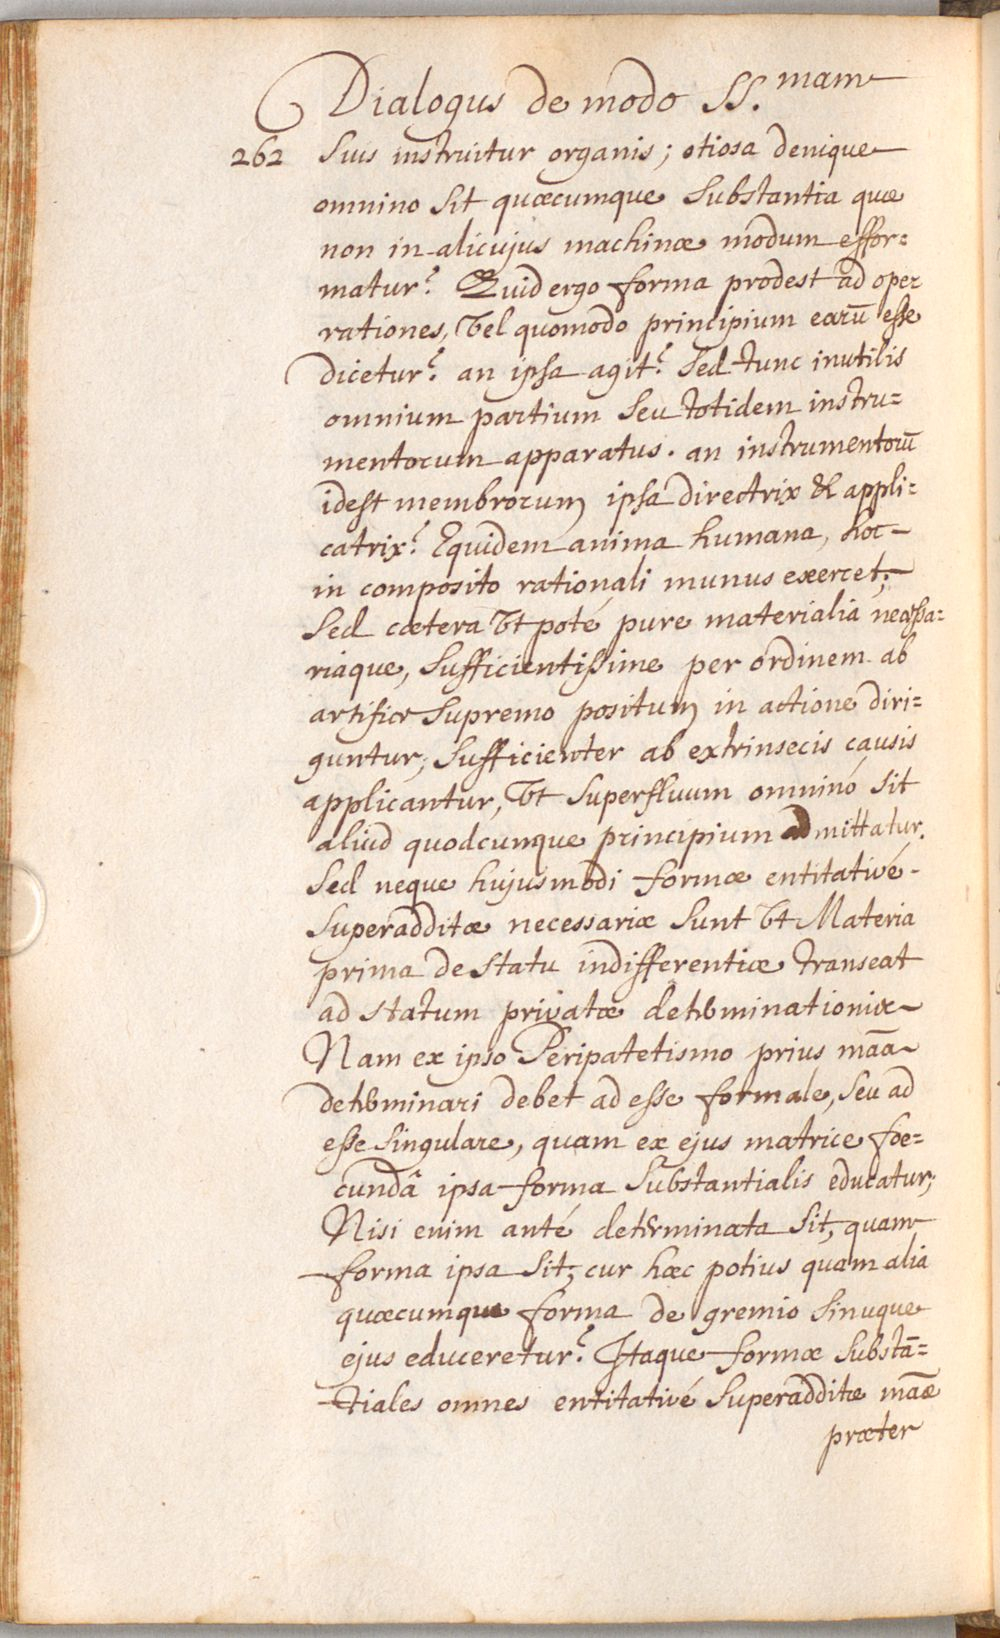 Dialogus de modo SS.mam
262 Suis instruitur organis; otiosa denique
omnino sit quæcumque substantia quæ
non in alicujus machinæ modum effor=
matur? Quid ergo forma prodest ad ope=
rationes, vel quomodo principium earū esse
dicetur? an ipsa agit? Sed tunc inutilis
omnium partium seu totidem instru=
mentorum apparatus. an instrumentorū
idest membrorum ipsa directrix & appli=
catrix? Equidem anima humana, hoc
in composito rationali munus exercet;
Sed cætera vt poté pure materialia necessa=
riaque, sufficientissime per ordinem ab
artifice supremo positum in actione diri=
guntur; sufficienter ab extrinsecis causis
applicantur, vt superfluum omninó sit
aliud quodcunque principium admittatur.
Sed neque hujusmodi formæ entitativé
superadditæ necessariæ sunt vt Materia
prima de statu indifferentiæ transeat
ad statum privatæ determinationis
Nam ex ipso Peripatetismo prius māa
determinari debet ad esse formale, seu ad
esse singulare, quam ex ejus matrice fœ=
cundâ ipsa forma substantialis educatur;
Nisi enim anté determinata sit, quam
forma ipsa sit; cur hæc potius quam alia
quæcumque forma de gremio sinuque
ejus educeretur? Itaque formæ substā=
tiales omnes entitativé superadditæ māæ
præter